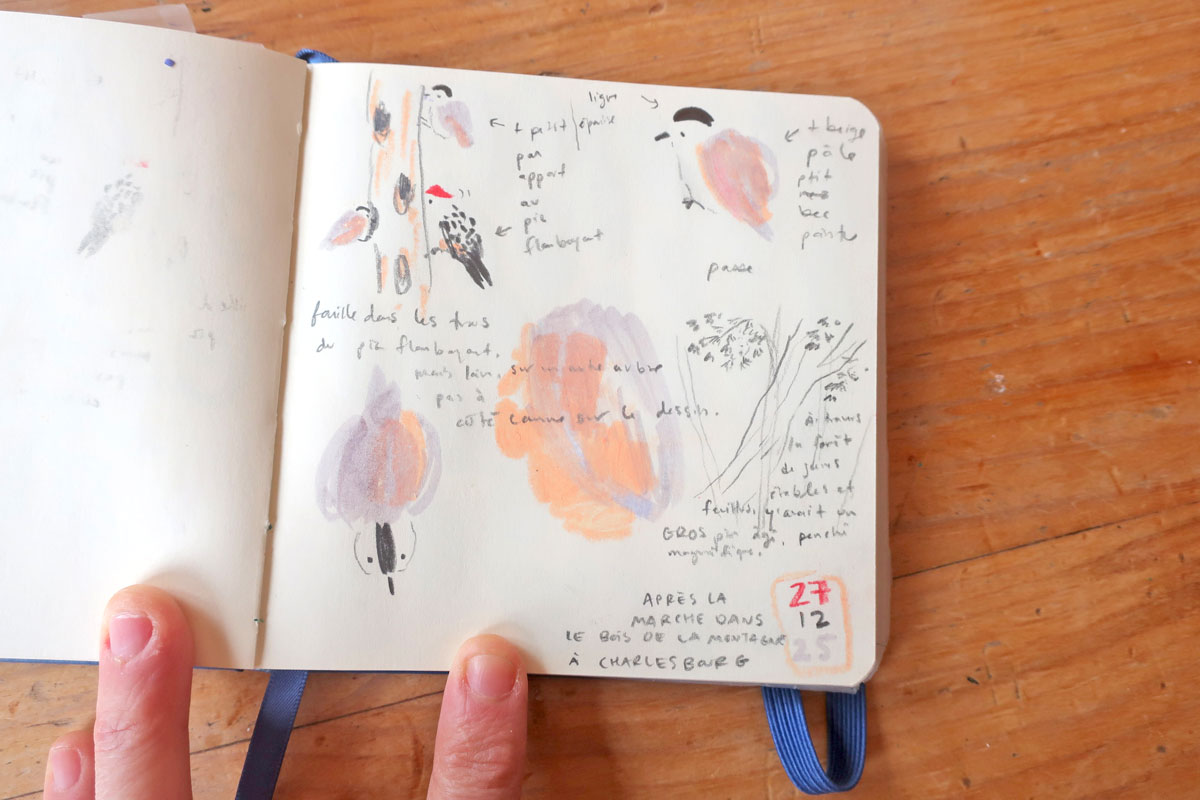 ligne
épaisse
+ petit
par
apport
au
pic
flamboyant
+ beige
pâle
ptit
bec
pointu
fouille dans les trous
du pic flamboyant,
mais loin, sur un autre arbre
pas à
côté comme sur le dessin.
À travers
la forêt
de jeunes
érables et
feuillus, y'avait un
GROS pin âgé, penché
magnifique.
APRÈS LA
MARCHE DANS
LE BOIS DE LA MONTAGNE
À CHARLESBOURG
27
12
25